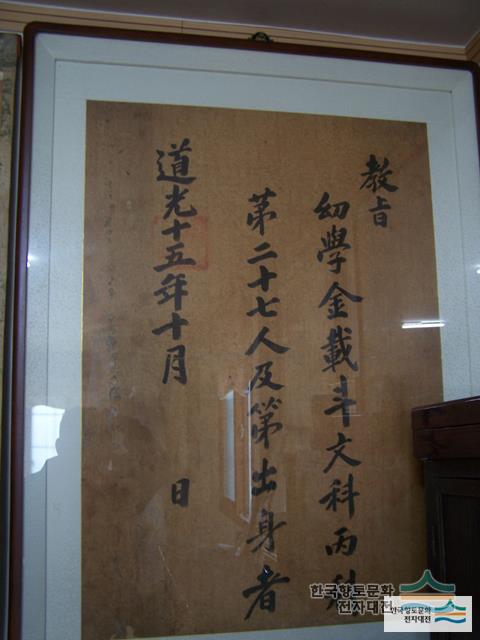 教旨
幼學金載斗文科丙科
第二十七人及第出身者
道光十五年十月 日
한국향토문화
전자대전
한국향토문화
전자대전